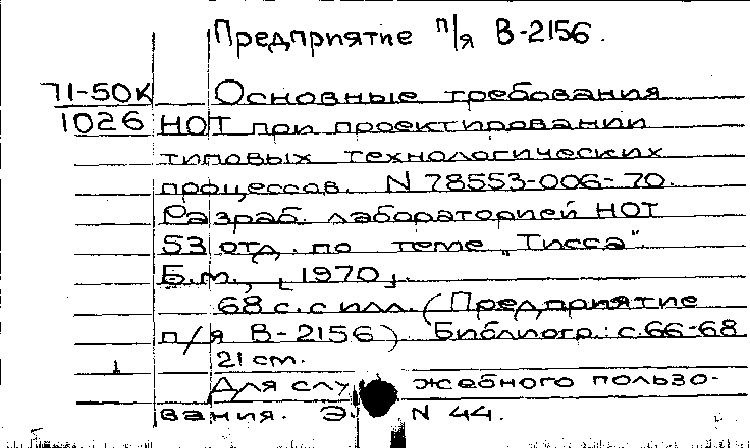 Предприятие п/я В-2156.
71-50К Основные требования
1026 НОТ при проектировании
типовых технологических
процессов. N 78553-006-70.
Разраб. лабораторией НОТ
53 отд. по теме „Тисса".
Б.м., [1970].
68 с. с илл. (Предприятие
п/я В-2156). Библиогр.: с.66-68
1 21 см.
Для служебного пользо-
вания. Э. N 44.